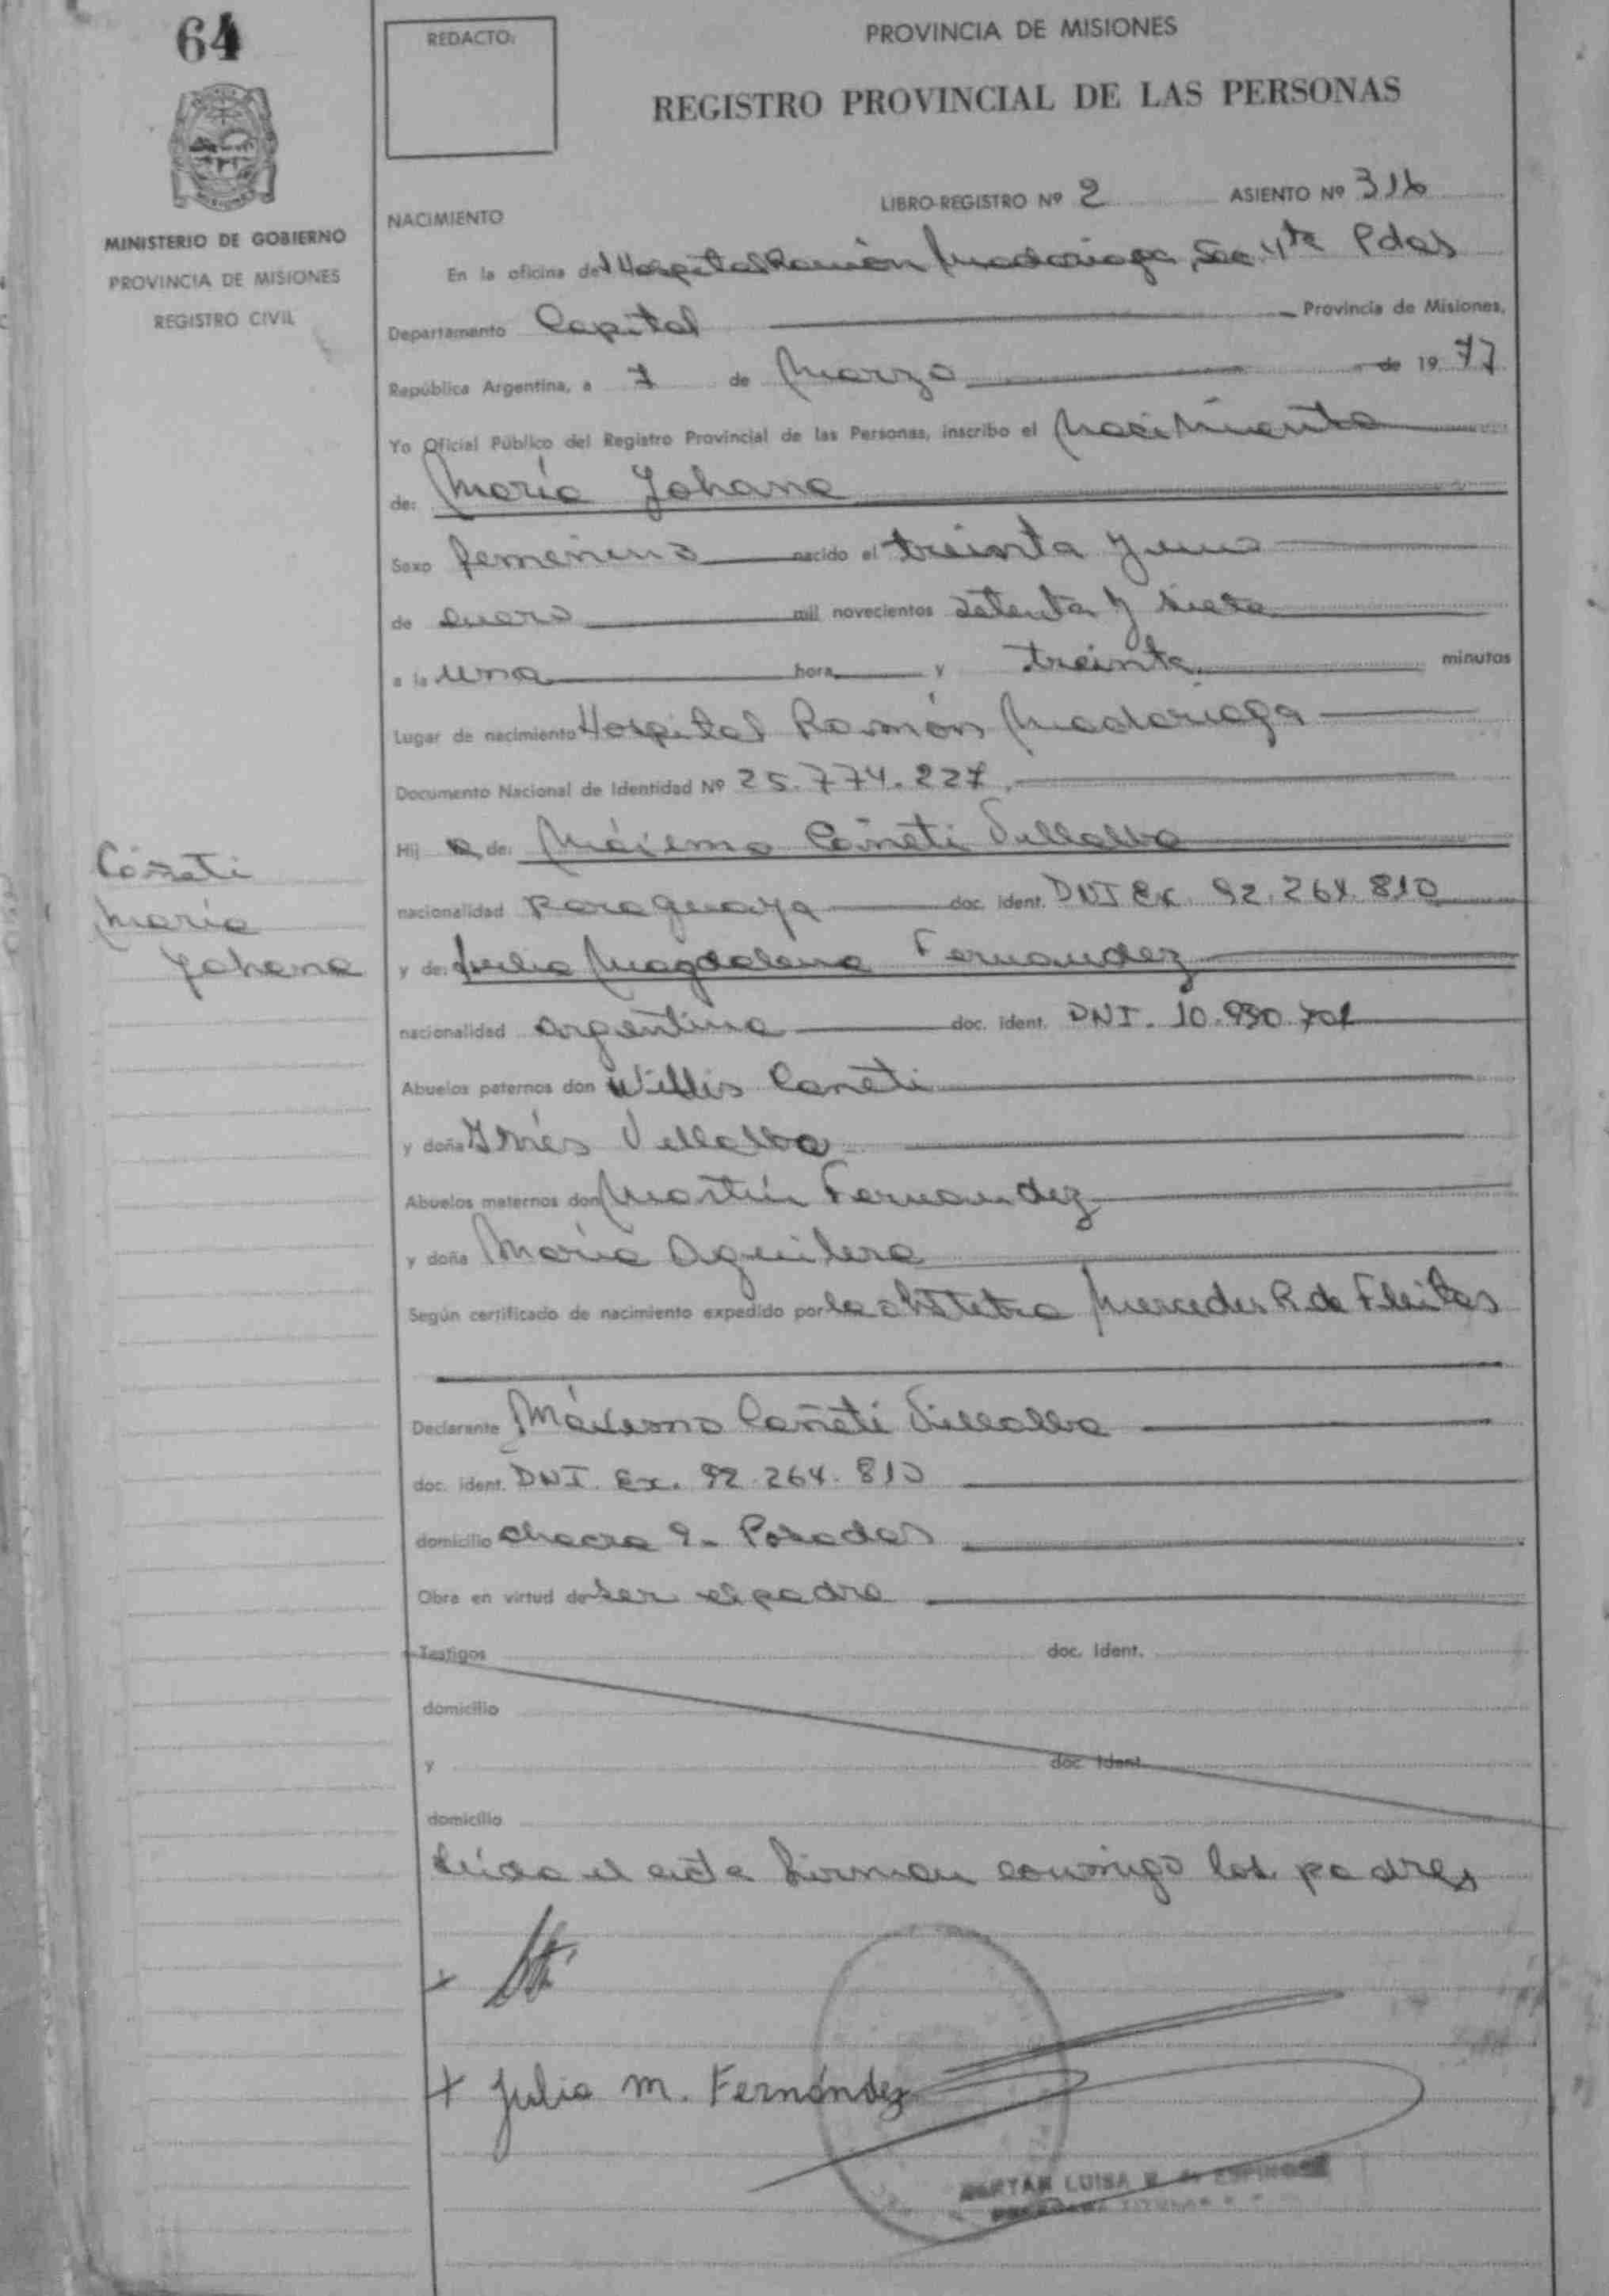 64
REDACTO:
PROVINCIA DE MISIONES
REGISTRO PROVINCIAL DE LAS PERSONAS
MINISTERIO DE GOBIERNO
PROVINCIA DE MISIONES
REGISTRO CIVIL
LIBRO-REGISTRO Nº 2 ASIENTO Nº 316
NACIMIENTO
En la oficina del Hospital Ramón Madariaga, Sec. 4ta Pdas
Departamento Capital Provincia de Misiones,
República Argentina, a 7 de Marzo de 1977
Yo Oficial Público del Registro Provincial de las Personas, inscribo el Nacimiento
de: María Johana
Sexo femenino nacido el treinta y uno
de enero mil novecientos setenta y siete
a la una hora y treinta minutos
Lugar de nacimiento Hospital Ramón Madariaga
Documento Nacional de Identidad Nº 25.774.227.
Hij a de: Máximo Cañeti Villalba
nacionalidad paraguaya doc. ident. DNI Ex. 92.264.810
Cañeti
María
Johana
y de: Julia Magdalena Fernandez
nacionalidad argentina doc. ident. DNI. 10.990.701
Abuelos paternos don Willis Cañeti
y doña Inés Villalba
Abuelos maternos don Martín Fernandez
y doña María Aguilera
Según certificado de nacimiento expedido por la obstetra Mercedes R. de Fleitas
Declarante Máximo Cañeti Villalba
doc. ident. DNI. Ex. 92.264.810
domicilio chacra 9- Posadas
Obra en virtud de ser el padre
Testigos doc. ident.
domicilio
y doc. ident.
domicilio
Leída el acta firman conmigo los padres
+
+ Julia M. Fernández
LUISA